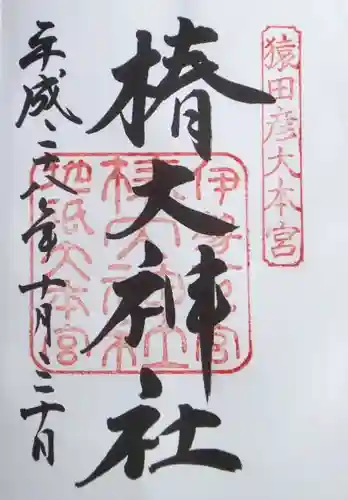 猿田彦大本宮
椿大神社
伊勢一宮
椿大神社
地祇大本宮
平成二十八年十月二十一日